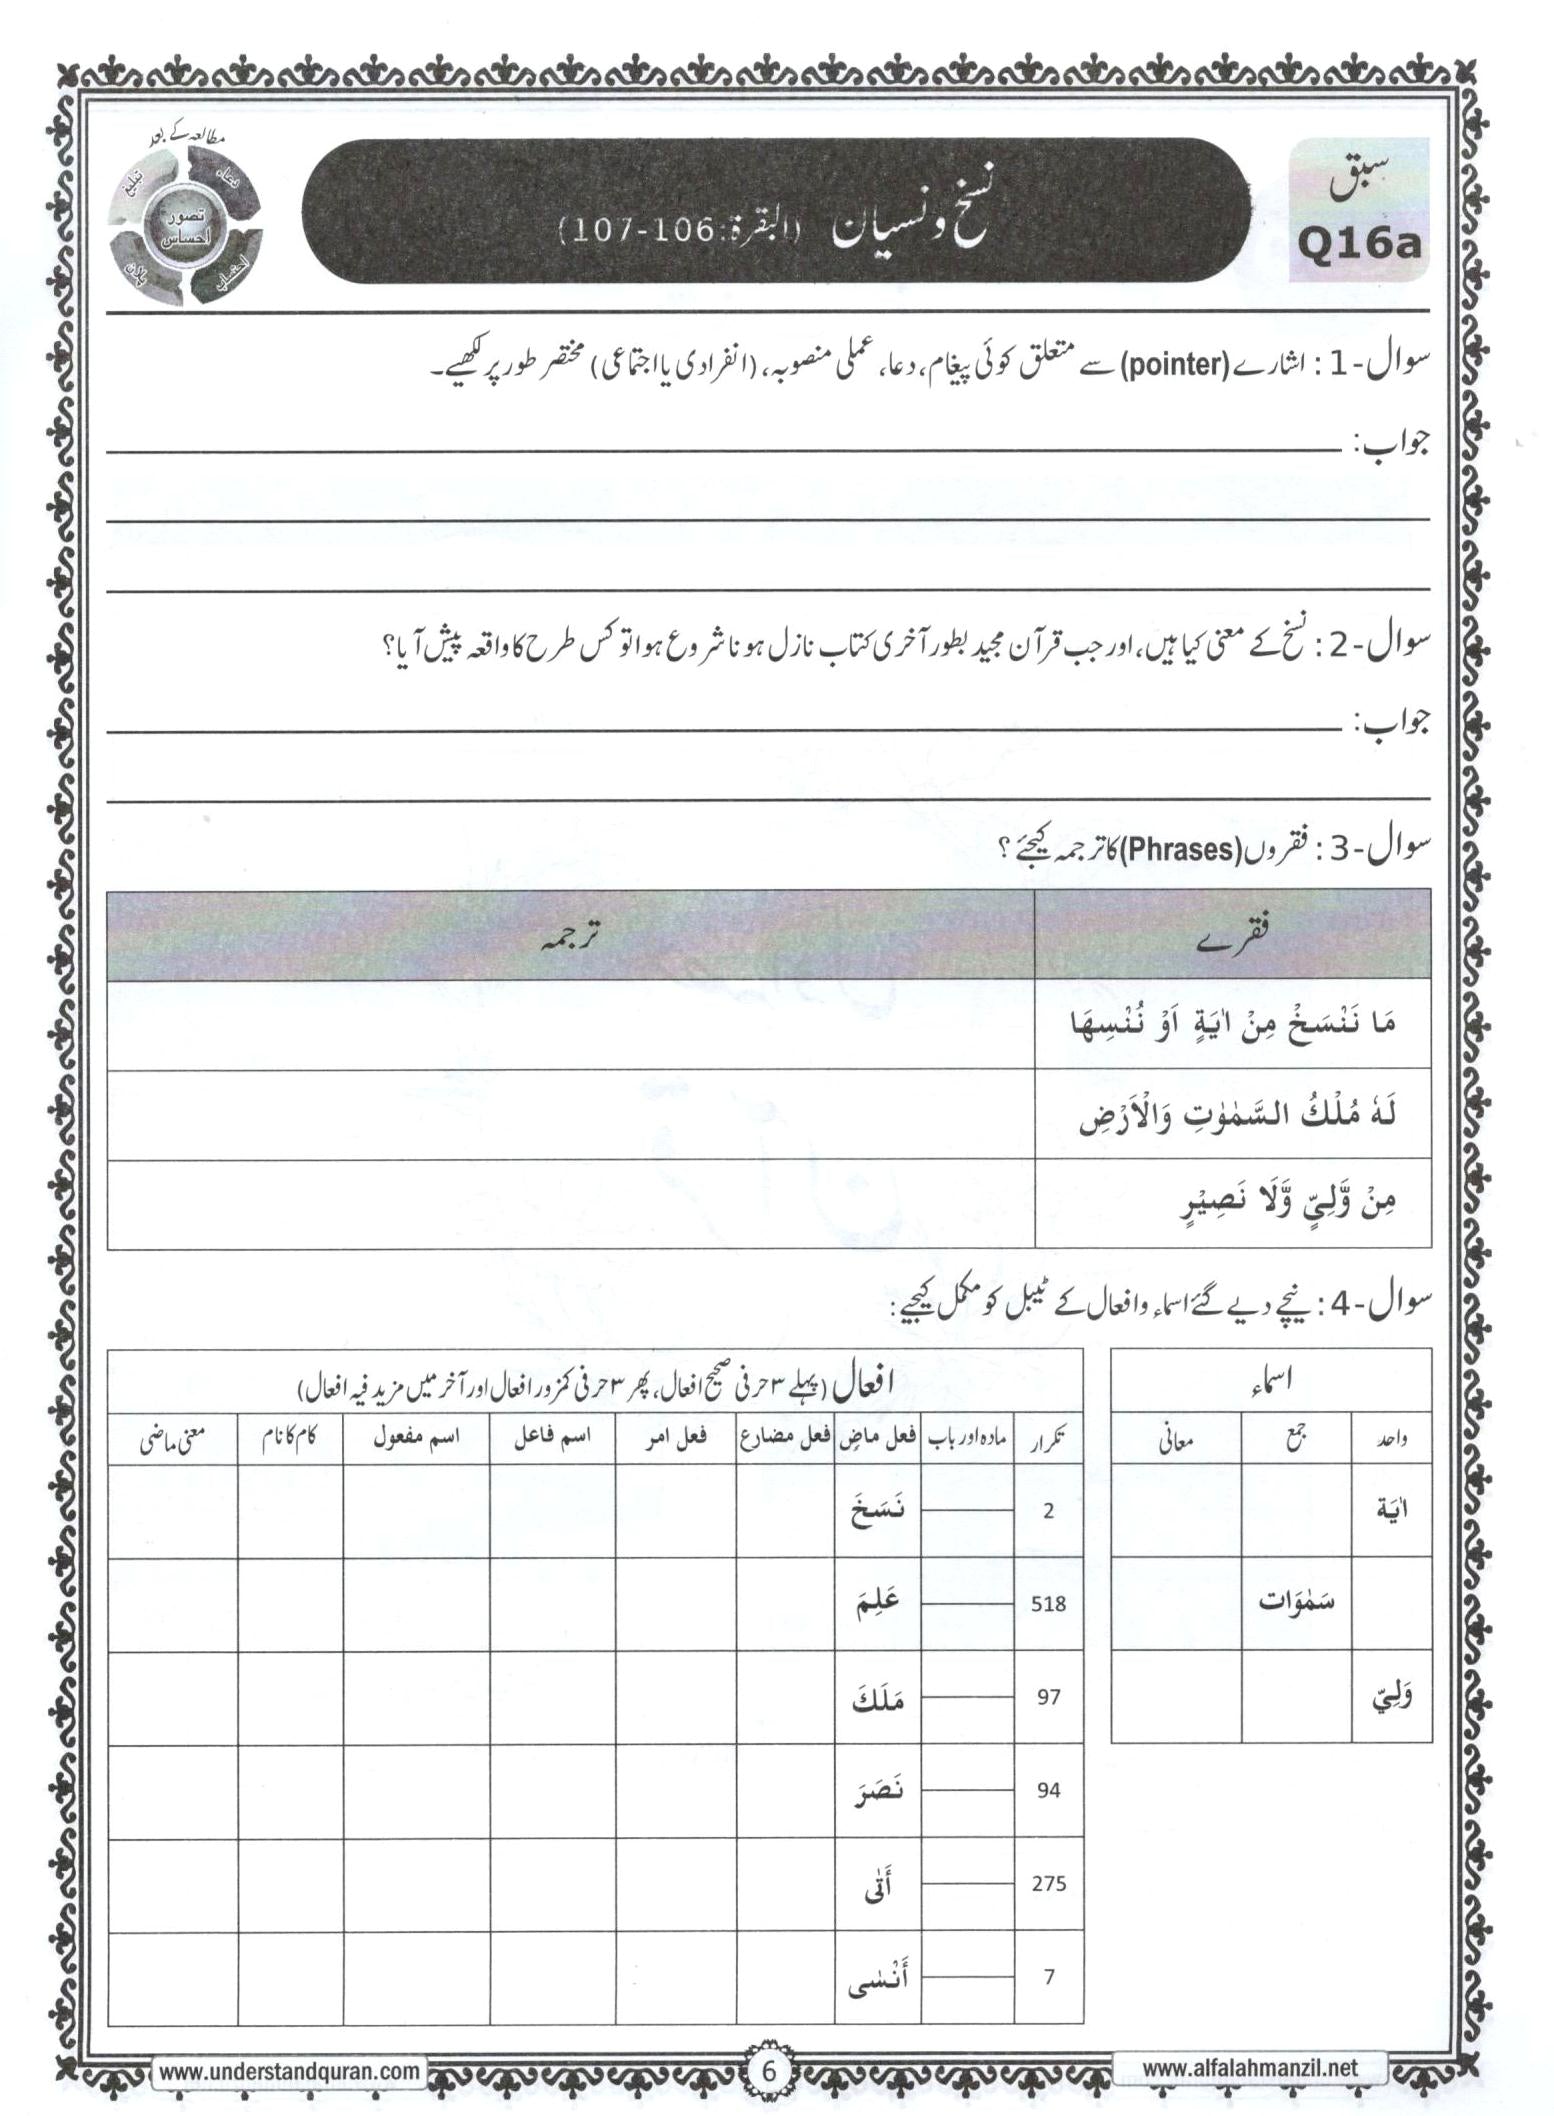 سبق
Q16a
نسخ و نسیان (البقرۃ:106-107)
مطالعہ کے بعد
دعاء
تبلیغ
تصور
احساس
احتساب
پلان
سوال-1: اشارے (pointer) سے متعلق کوئی پیغام، دعا، عملی منصوبہ، (انفرادی یا اجتماعی) مختصر طور پر لکھیے۔
جواب:
سوال-2: نسخ کے معنی کیا ہیں، اور جب قرآن مجید بطور آخری کتاب نازل ہونا شروع ہوا تو کس طرح کا واقعہ پیش آیا؟
جواب:
سوال-3: فقروں (Phrases) کا ترجمہ کیجئے؟
فقرے ترجمہ
مَا نَنْسَخْ مِنْ اٰيَةٍ اَوْ نُنْسِهَا
لَهٗ مُلْكُ السَّمٰوٰتِ وَالْاَرْضِ
مِنْ وَّلِيٍّ وَّلَا نَصِيْرٍ
سوال-4: نیچے دیے گئے اسماء وافعال کے ٹیبل کو مکمل کیجیے:
اسماء
واحد جمع معانی
اٰيَة
سَمٰوَات
وَلِيّ
افعال (پہلے ۳ حرفی صحیح افعال، پھر ۳ حرفی کمزور افعال اور آخر میں مزید فیہ افعال)
تکرار مادہ اور باب فعل ماضٍ فعل مضارع فعل امر اسم فاعل اسم مفعول کام کا نام معنی ماضی
2 نَسَخَ
518 عَلِمَ
97 مَلَكَ
94 نَصَرَ
275 أَتٰى
7 أَنْسٰى
www.understandquran.com
6
www.alfalahmanzil.net